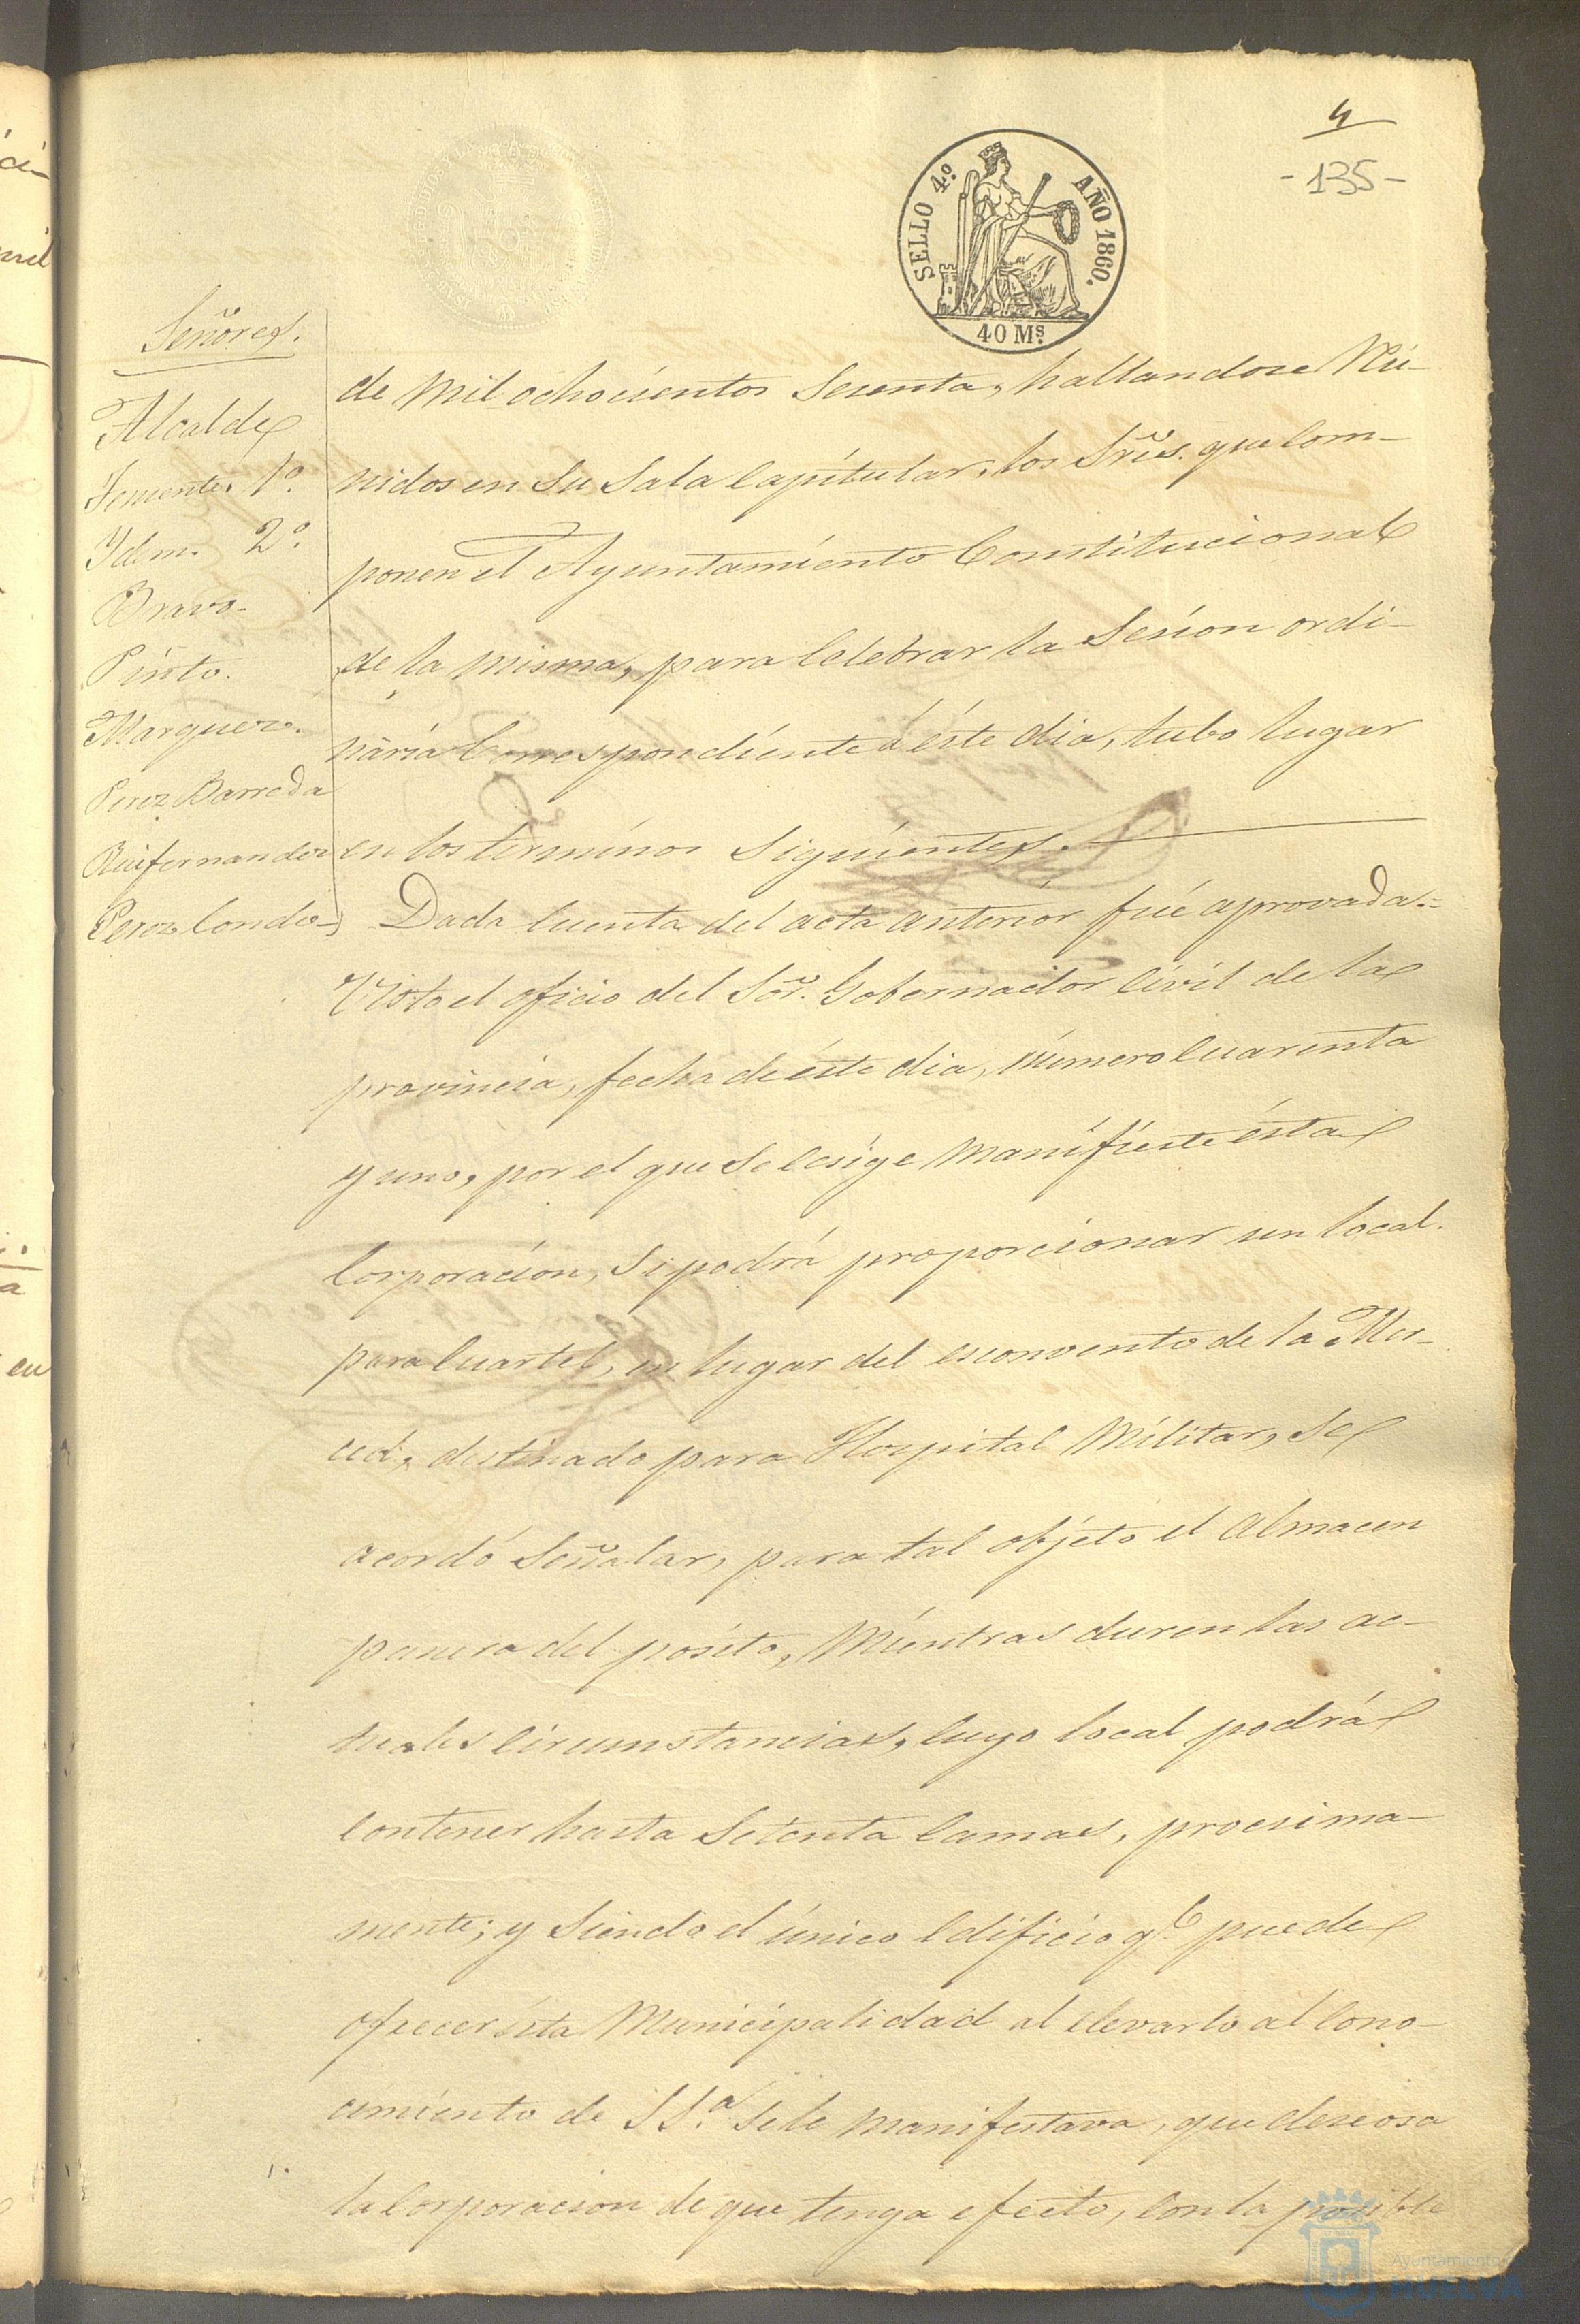 4
-135-
SELLO 4.º AÑO 1860.
40 Ms.
Señores.
Alcalde
Teniente 1º.
Ydem. 2º.
Bravo.
Pinto.
Marquez.
Perez Barreda
Ruifernandez
Perez Conde
de mil ochocientos sesenta, hallandose Reu-
nidos en su Sala Capitular, los Sres. que com-
ponen el Ayuntamiento Constitucional
de la misma, para Celebrar la Sesion ordi-
naria Correspondiente á éste dia, tubo lugar
en los terminos siguientes.
Dada Cuenta del acta anterior fué aprovada.=
Visto el oficio del Sor. Gobernador Civil de la
provincia, fecha de éste dia, número Cuarenta
y uno, por el que se ecsige manifieste ésta
Corporacion, si podrá proporcionar un local
para Cuartel, en lugar del esconvento de la Mer-
ced, destinado para Hospital Militar, se
acordó señalar, para tal objeto el Almacen
panera del posito, Mientras duren las ac-
tuales Circunstancias, Cuyo local podrá
Contener hasta setenta Camas, procsima-
mente; y siendo el único Edificio qe. puede
ofrecer ésta Municipalidad al elevarlo al Cono-
cimiento de S Sa. se le manifestava, que deseosa
la Corporacion de que tenga efecto, Con la posible
Ayuntamiento
HUELVA